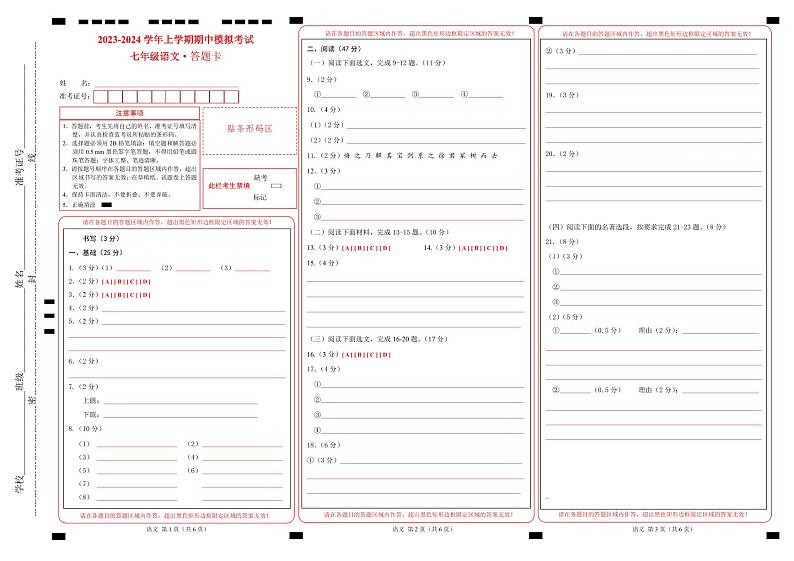 2023-2024 学年上学期期中模拟考试
七年级语文·答题卡
姓 名：
准考证号：
注意事项
1．答题前，考生先将自己的姓名，准考证号填写清
楚，并认真检查监考员所粘贴的条形码。
2．选择题必须用 2B 铅笔填涂；填空题和解答题必
须用 0.5 mm 黑色签字笔答题，不得用铅笔或圆
珠笔答题；字体工整、笔迹清晰。
3．请按题号顺序在各题目的答题区域内作答，超出
区域书写的答案无效；在草稿纸、试题卷上答题
无效。
4．保持卡面清洁，不要折叠、不要弄破。
5．正确填涂
贴条形码区
此栏考生禁填
缺考
标记
请在各题目的答题区域内作答，超出黑色矩形边框限定区域的答案无效！
书写（3 分）
一、基础（25 分）
1.（3 分）（1） （2） （3）
2.（2 分）[A][B][C][D]
3.（2 分）[A][B][C][D]
4.（2 分）
5.（2 分）
6.（2 分）
7.（2 分）
上联：
下联：
8.（10 分）
（1） （2）
（3） （4）
（5） （6）
（7）
（8）
请在各题目的答题区域内作答，超出黑色矩形边框限定区域的答案无效！
语文 第 1 页（共 6 页）
学校
班级
姓名
准考证号
密
封
线
请在各题目的答题区域内作答，超出黑色矩形边框限定区域的答案无效！
二、阅读（47 分）
（一）阅读下面选文，完成 9-12 题。（11 分）
9.（2 分）
① ② ③ ④
10.（4 分）
（1）（2 分）
（2）（2 分）
11.（2 分）脩 之 乃 解 其 宝 剑 系 之 徐 君 冢 树 而 去
12.（3 分）
①
②
③
（二）阅读下面材料，完成 13-15 题。（10 分）
13.（3 分）[A][B][C][D] 14.（3 分）[A][B][C][D]
15.（4 分）
（三）阅读下面选文，完成 16-20 题。（17 分）
16.（3 分）[A][B][C][D]
17.（4 分）
①
②
③
④
18.（6 分）
①（3 分）
请在各题目的答题区域内作答，超出黑色矩形边框限定区域的答案无效！
语文 第 2 页（共 6 页）
请在各题目的答题区域内作答，超出黑色矩形边框限定区域的答案无效！
②（3 分）
19.（3 分）
20.（2 分）
（四）阅读下面的名著选段，按要求完成 21-23 题。（8 分）
21.（8 分）
（1）（3 分）
①
②
③
（2）（5 分）
① （0.5 分） 理由（2 分）：
② （0.5 分） 理由（2 分）：
请在各题目的答题区域内作答，超出黑色矩形边框限定区域的答案无效！
语文 第 3 页（共 6 页）